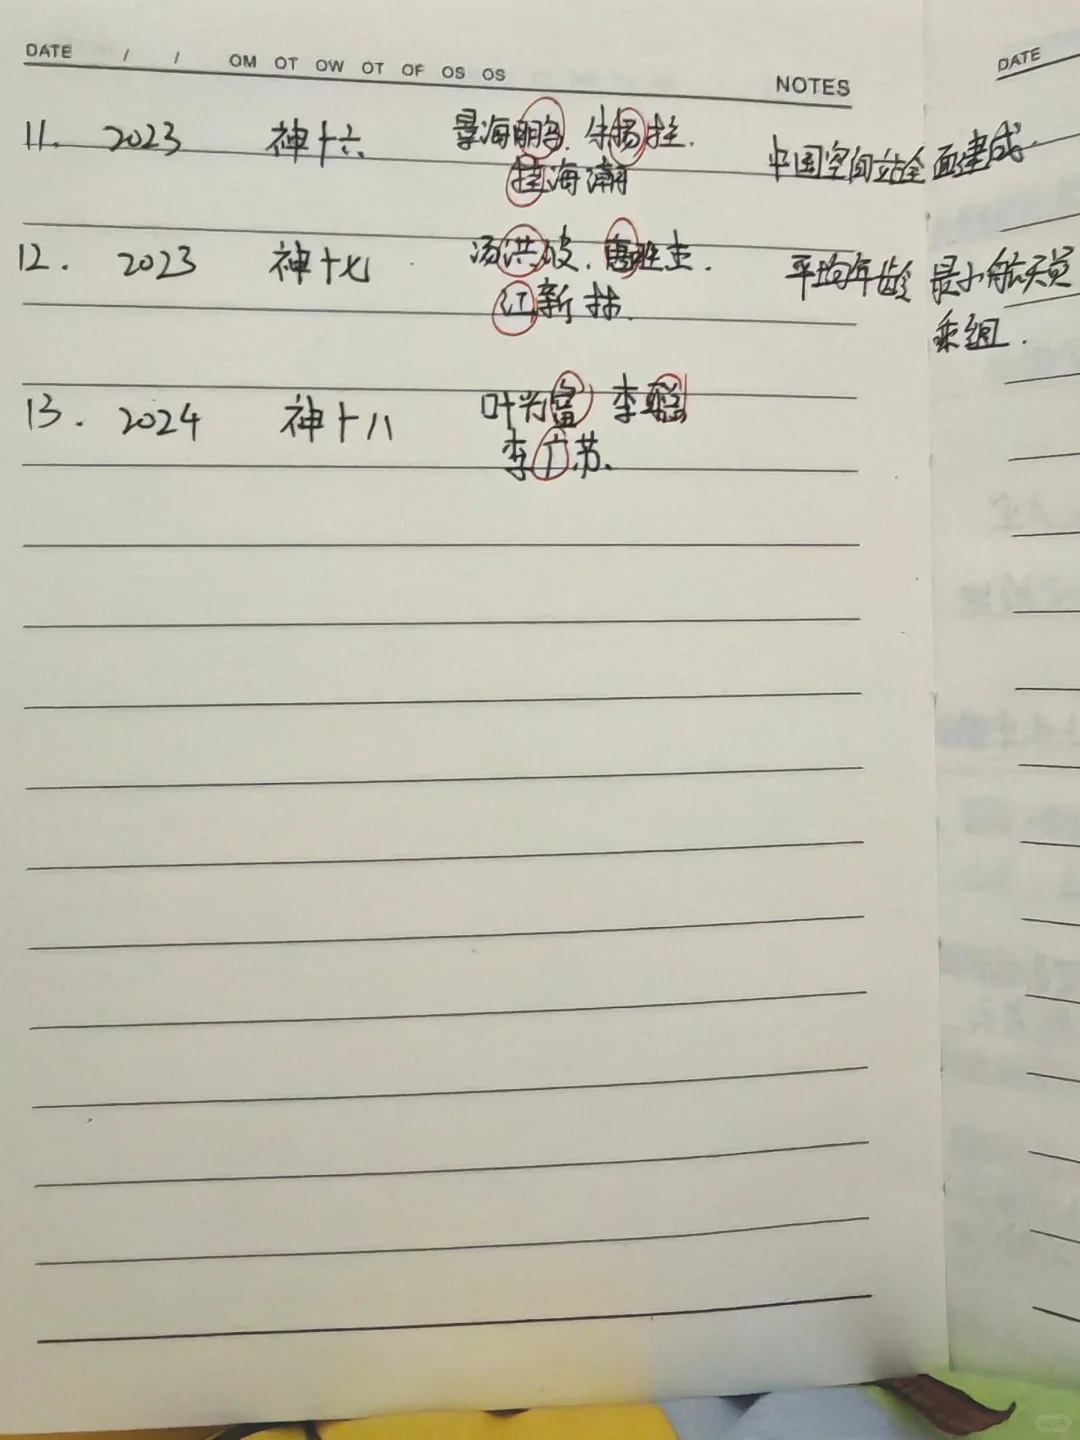 DATE / / OM OT OW OT OF OS OS
NOTES
DATE
11. 2023 神十六 景海鹏. 朱扬柱. 中国空间站全面建成.
桂海潮
12. 2023 神十七 汤洪波. 唐胜杰. 平均年龄最小航天员
江新林. 乘组.
13. 2024 神十八 叶光富 李聪
李广苏.